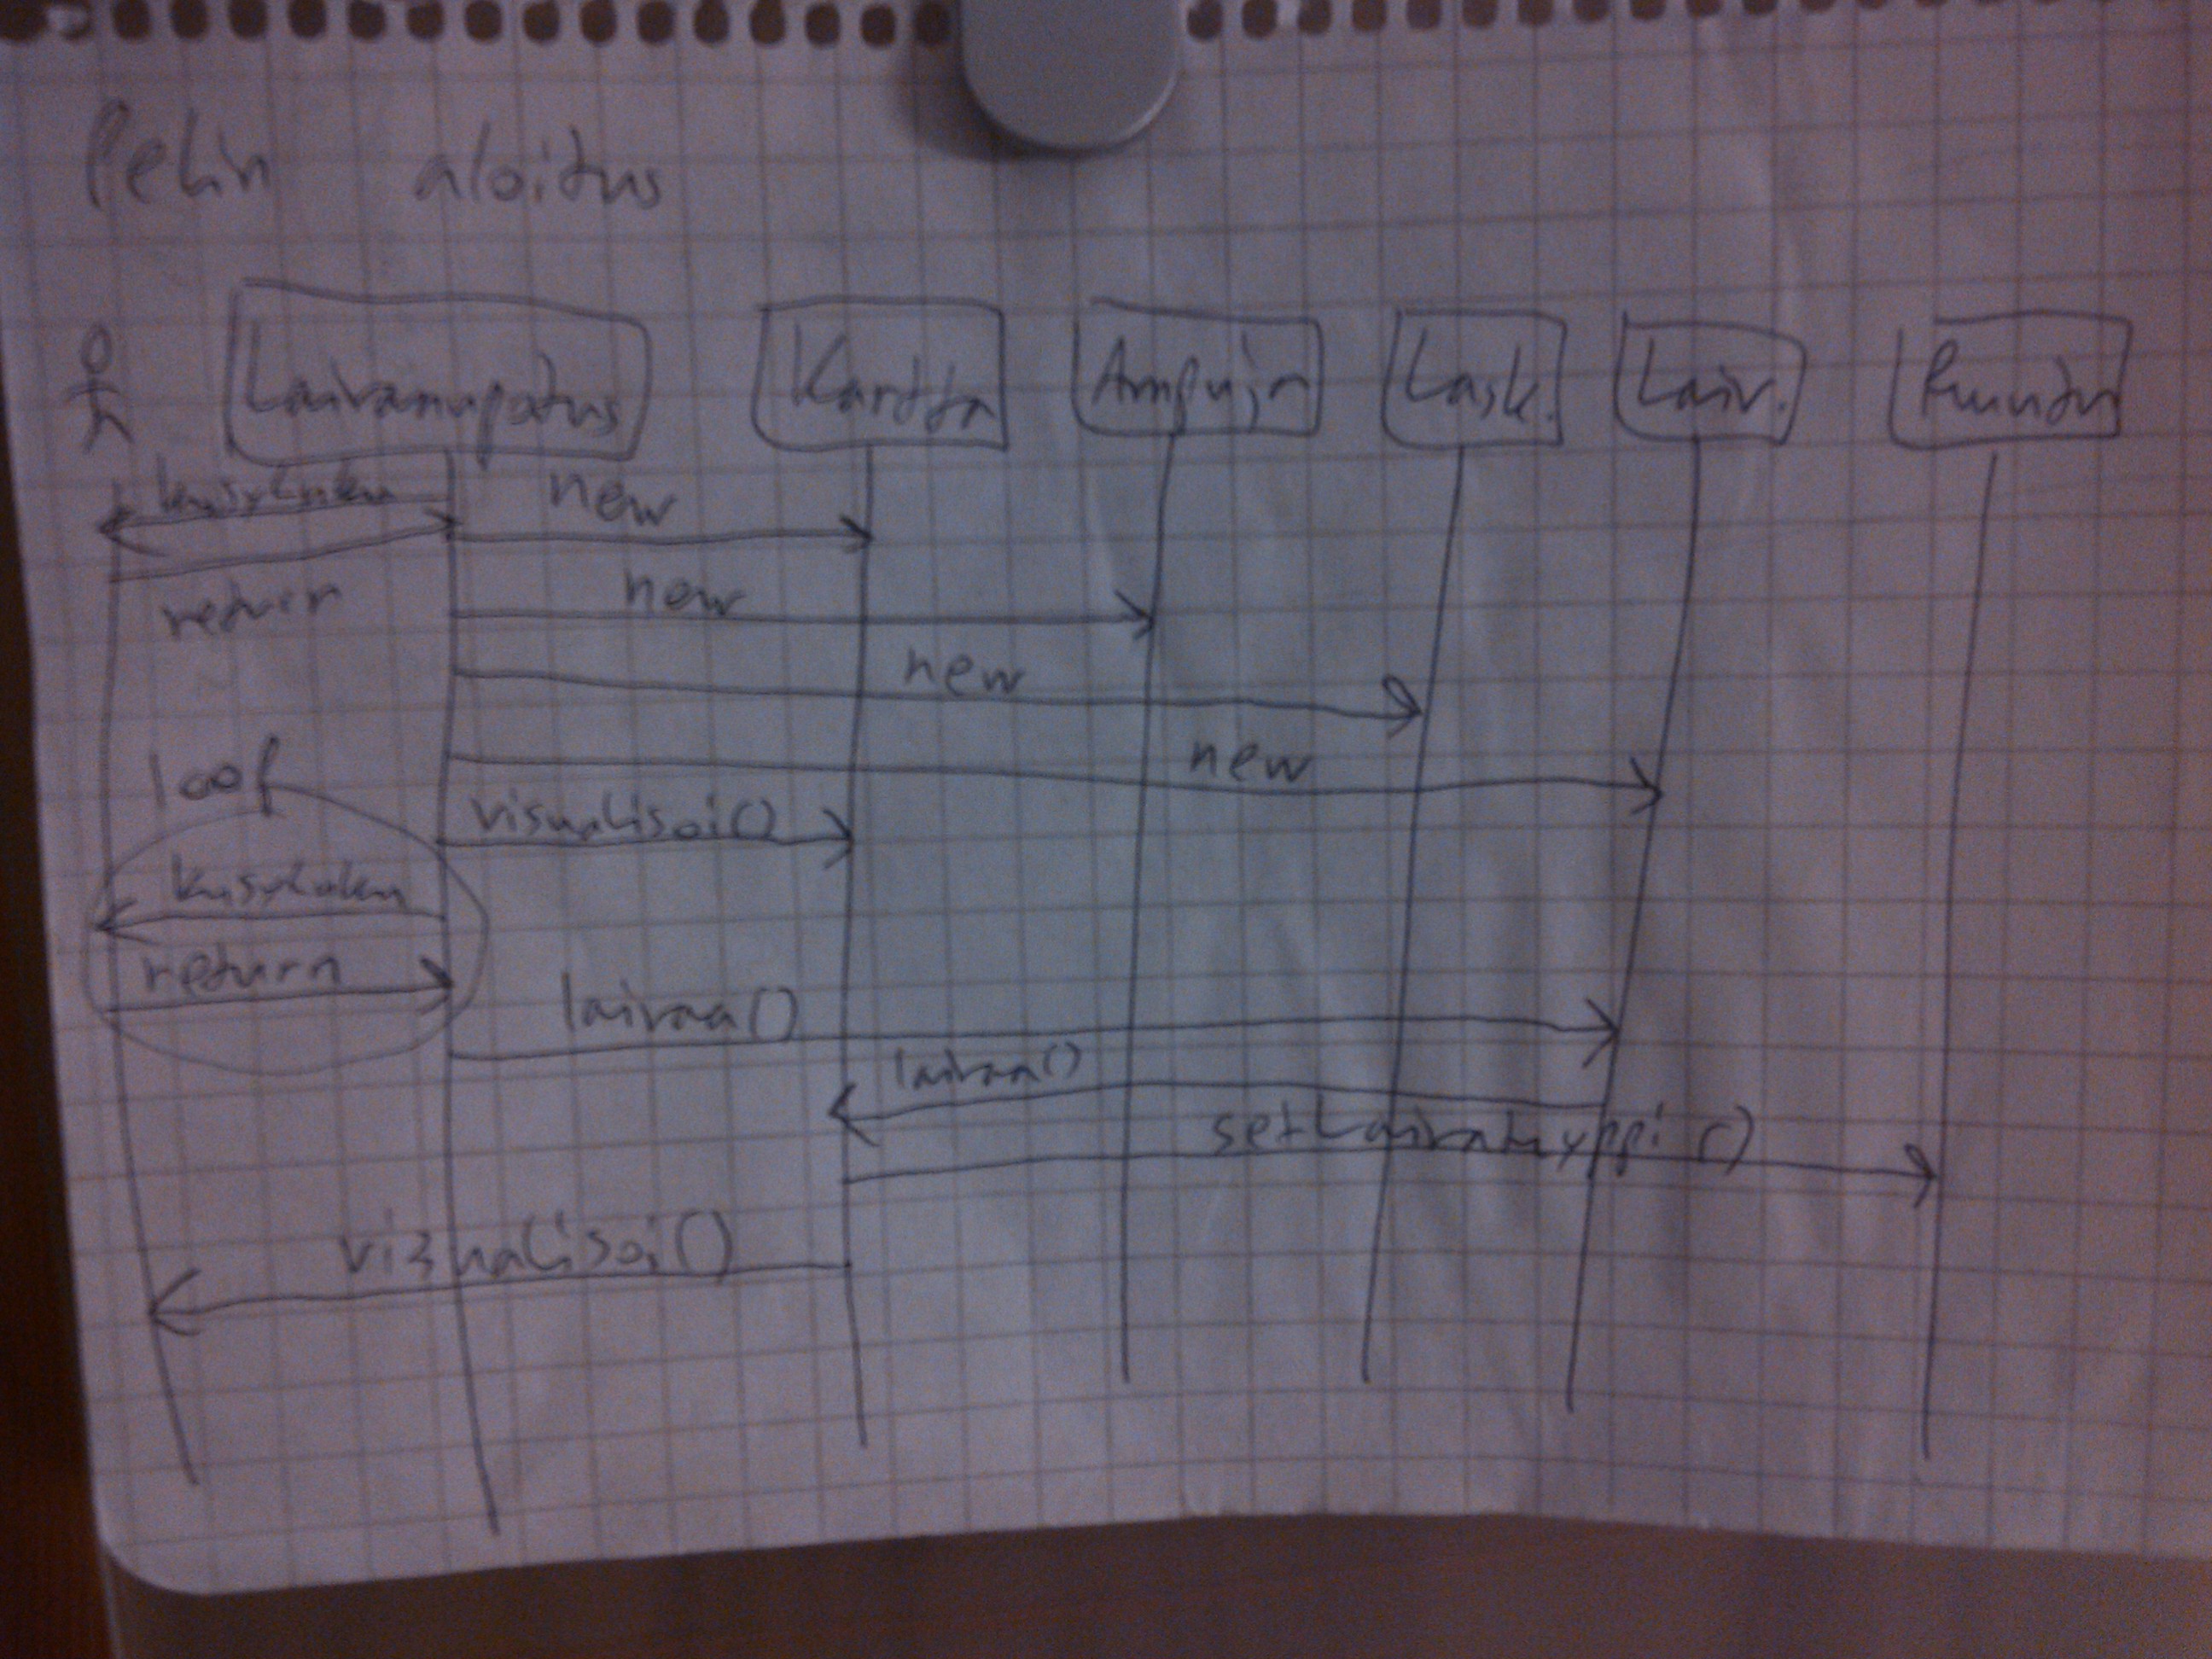 Pelin aloitus
Laivanupotus Kartta Ampuja Lask. Laiv. Ruutu
kysyKoko new
return new
new
new
loop
visualisoi()
return
laivaa()
laivaa()
setLaivatyyppi()
visualisoi()